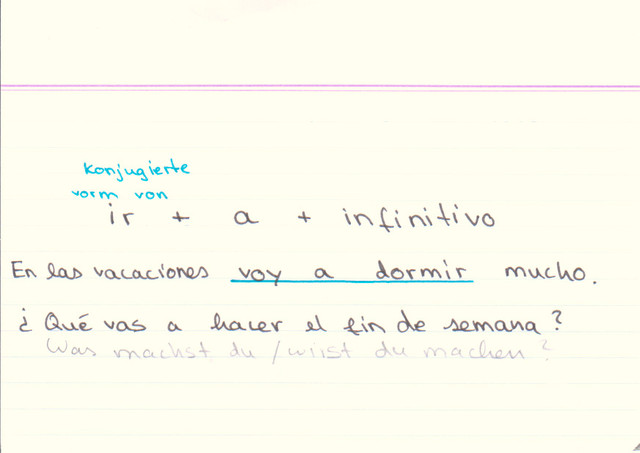 konjugierte
vorm von
ir + a + infinitivo
En las vacaciones voy a dormir mucho.
¿Qué vas a hacer el fin de semana?
Was machst du / wirst du machen?